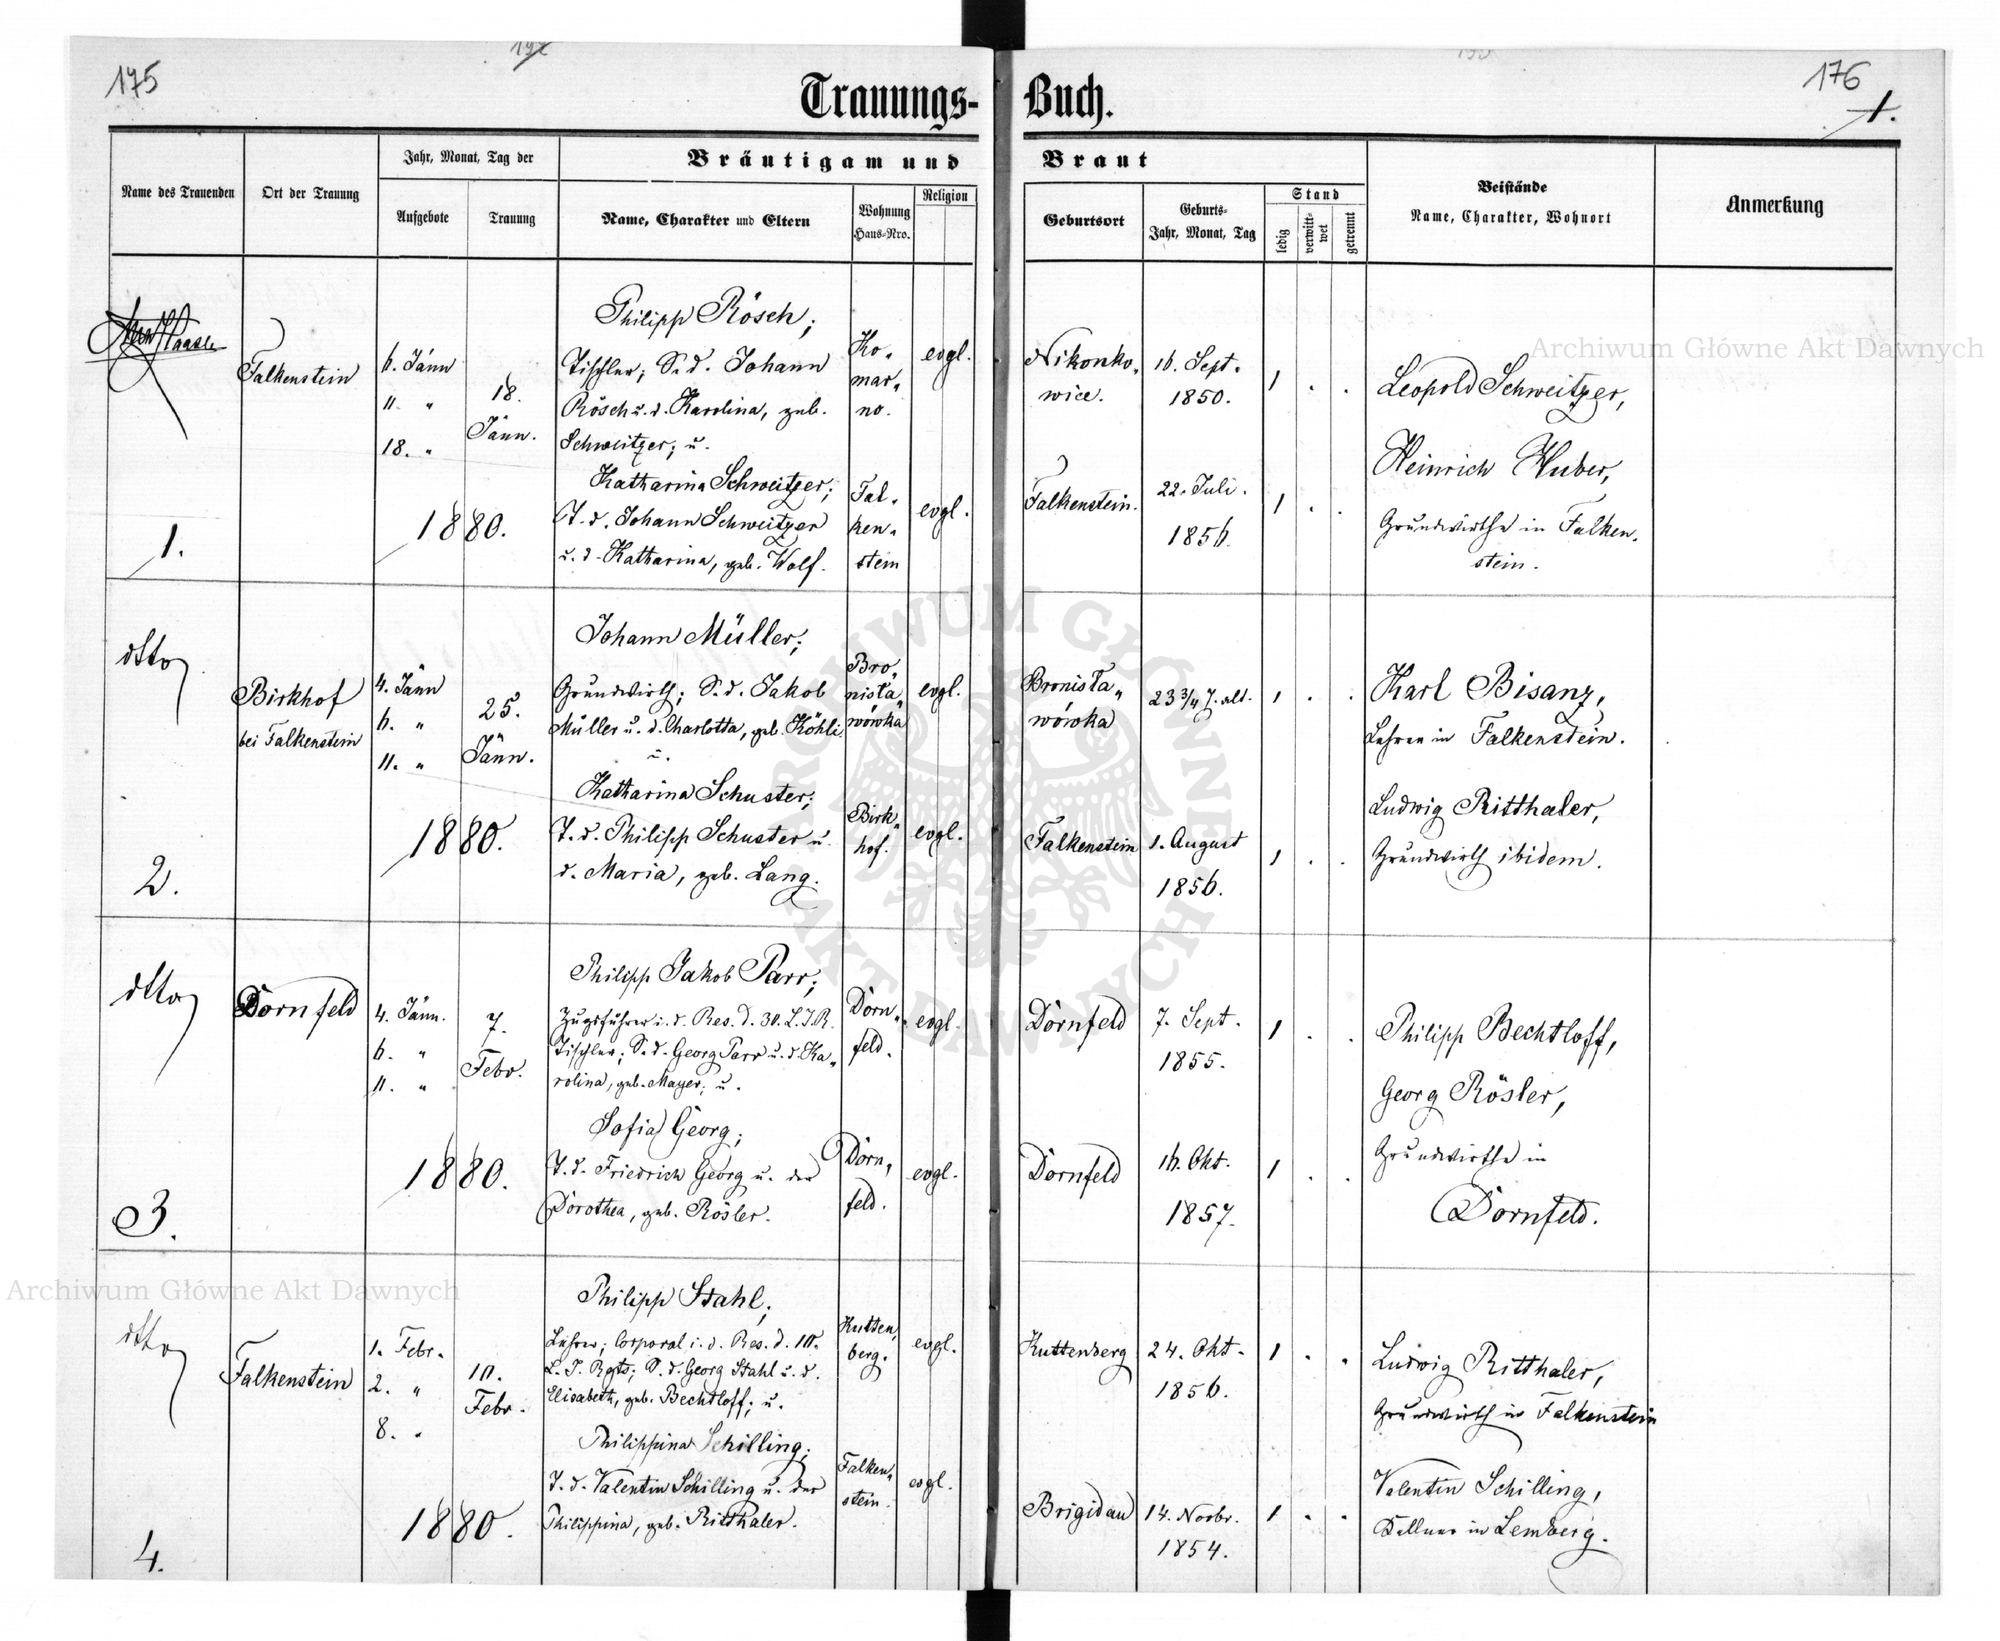 175
176
1.
Trauungs-Buch.
Name des Trauenden
Ort der Trauung
Jahr, Monat, Tag der
Aufgebote
Trauung
Bräutigam und Braut
Name, Charakter und Eltern
Wohnung
Haus-Nro.
Religion
Geburtsort
Geburts-
Jahr, Monat, Tag
Stand
ledig
verwitt-
wet
getrennt
Beistände
Name, Charakter, Wohnort
Anmerkung
1.
Falkenstein
6. Jänn
11. "
18. "
18.
Jänn.
1880.
Philipp Rösch;
Tischler; S. d. Johann
Rösch u. d. Karolina, geb.
Schweitzer; u.
Katharina Schweitzer;
T. d. Johann Schweitzer
u. d. Katharina, geb. Wolf.
Ko„
mar„
no.
Fal„
ken„
stein
evgl.
evgl.
Nikonko„
wice.
Falkenstein.
16. Sept.
1850.
22. Juli.
1856.
1 . .
1 . .
Leopold Schweitzer,
Heinrich Huber,
Grundwirthe in Falken„
stein.
dtto
2.
Birkhof
bei Falkenstein
4. Jänn
6. "
11. "
25.
Jänn.
1880.
Johann Müller;
Grundwirth; S. d. Jakob
Müller u. d. Charlotta, geb. Köhli
u.
Katharina Schuster;
T. d. Philipp Schuster u.
d. Maria, geb. Lang.
Bro„
nisła„
wówka
Birk„
hof.
evgl.
evgl.
Bronisła„
wówka
Falkenstein
23 3/4 J. alt.
1. August
1856.
1 . .
1 . .
Karl Bisanz,
Lehrer in Falkenstein.
Ludwig Ritthaler,
Grundwirth ibidem.
dtto
3.
Dornfeld
4. Jänn.
6. "
11. "
7.
Febr.
1880.
Philipp Jakob Parr;
Zugsführer i. d. Res. d. 30. L. I. R.
Tischler; S. d. Georg Parr u. d. Ka„
rolina, geb. Mayer; u.
Sofia Georg;
T. d. Friedrich Georg u. der
Dorothea, geb. Rösler.
Dorn„
feld.
Dorn„
feld.
evgl.
evgl.
Dornfeld
Dornfeld
7. Sept.
1855.
16. Okt.
1857.
1 . .
1 . .
Philipp Bechtloff,
Georg Rösler,
Grundwirthe in
Dornfeld.
dtto
4.
Falkenstein
1. Febr.
2. "
8. "
10.
Febr.
1880.
Philipp Stahl;
Lehrer; Corporal i. d. Res. d. 10.
L. I. Rgts; S. d. Georg Stahl u. d.
Elisabeth, geb. Bechtloff; u.
Philippina Schilling;
T. d. Valentin Schilling u. der
Philippina, geb. Ritthaler.
Kutten„
berg.
Falken„
stein.
evgl.
evgl.
Kuttenberg
Brigidau
24. Okt.
1856.
14. Novbr.
1854.
1 . .
1 . .
Ludwig Ritthaler,
Grundwirth in Falkenstein
Valentin Schilling,
Kellner in Lemberg.
Archiwum Główne Akt Dawnych
Archiwum Główne Akt Dawnych
ARCHIWUM GŁÓWNE AKT DAWNYCH